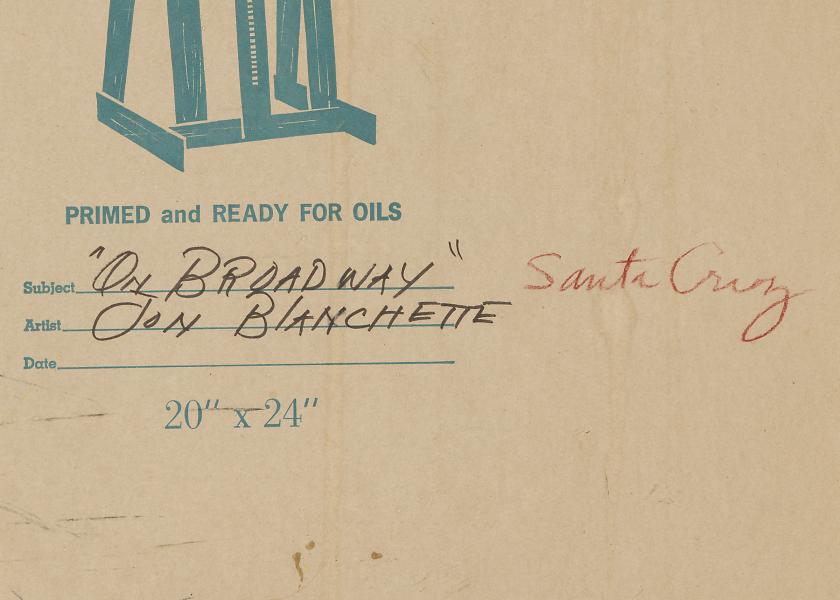 PRIMED and READY FOR OILS
Subject "On BROADWAY" Santa Cruz
Artist Jon BlANCHETTE
Date
20" x 24"